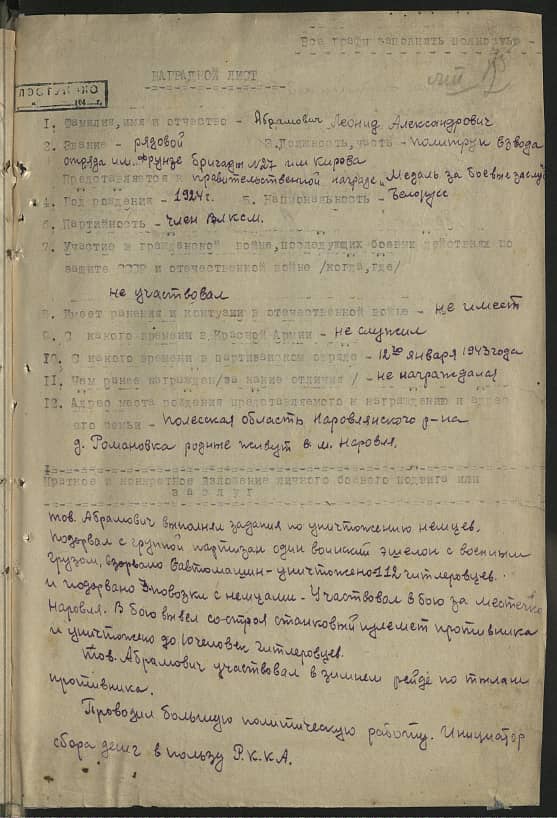 Все графы заполнять полностью
НАГРАДНОЙ ЛИСТ
1. Фамилия, имя и отчество - Абрамович Леонид Александрович
2. Звание - рядовой 3. Должность, часть - политрук взвода
отряда им. Фрунзе бригады №27 им Кирова
Представляется к правительственной награде "Медаль за боевые заслу
4. Год рождения - 1924г. 5. Национальность - Белорусс
6. Партийность - член ВЛКСМ.
7. Участие в гражданской войне, последующих боевых действиях по
защите СССР и отечественной войне /когда, где/
не участвовал
8. Имеет ранения и контузии в отечественной войне - не имеет
9. С какого времени в Красной Армии - не служил
10. С какого времени в партизанском отряде - 12го января 1943 года
11. Чем ранее награжден /за какие отличия/ - не награждался
12. Адрес места рождения представляемого к награждению и адрес
его семьи - Полесская область Наровлянского р-на
д. Романовка родные живут в м. Наровля.
Краткое и конкретное изложение личного боевого подвига или
заслуг
тов. Абрамович выполнял задания по уничтожению немцев.
Подорвал с группой партизан один воинский эшелон с военным
грузом, взорвано 8 автомашин - уничтожено 112 гитлеровцев.
и подорвано 3 повозки с немцами. Участвовал в бою за местечко
Наровля. В бою вывел со строя станковый пулемет противника
и уничтожено до 10 человек гитлеровцев.
Тов. Абрамович участвовал в зимнем рейде по тылам
противника.
Проводил большую политическую работу. Инициатор
сбора денег в пользу Р.К.К.А.